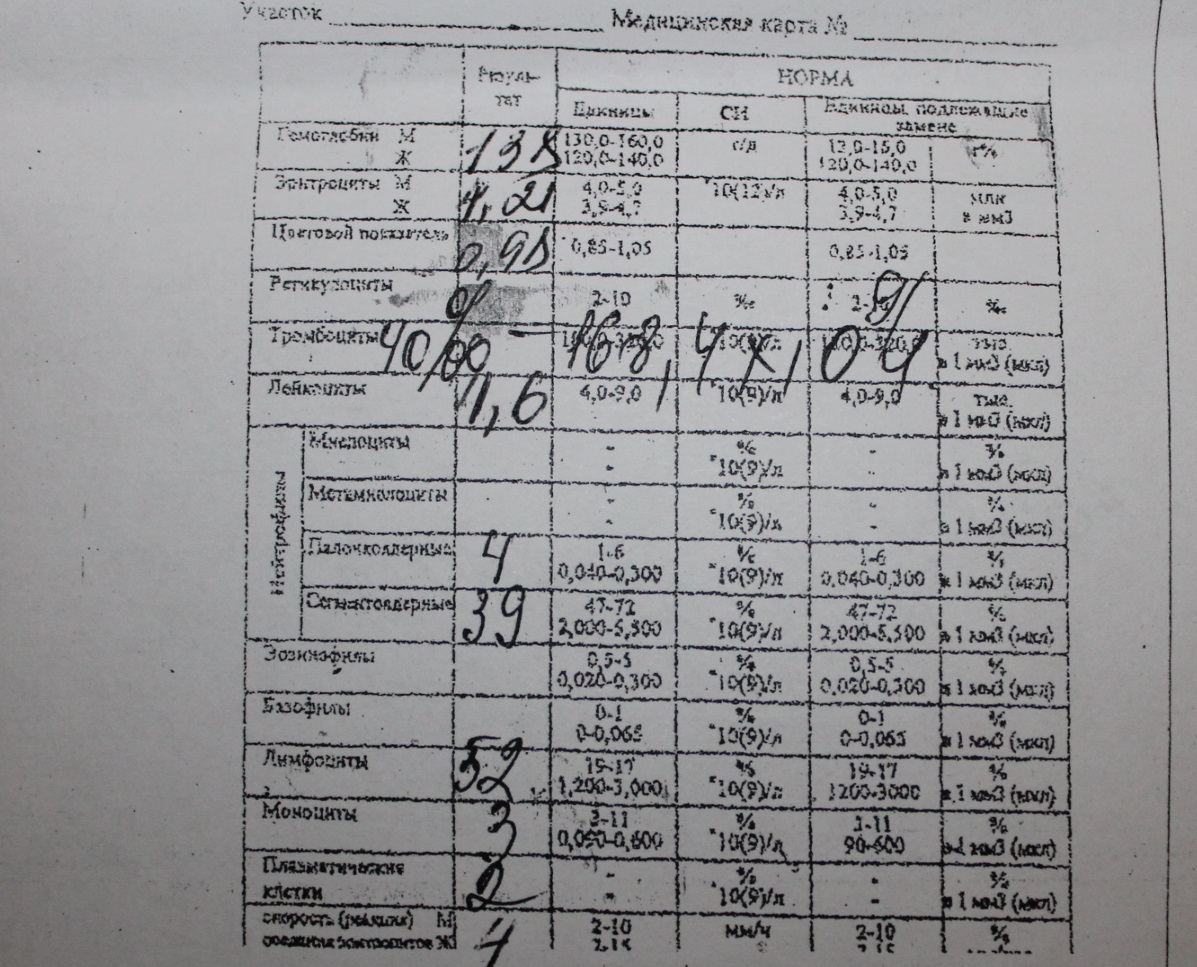 Участок Медицинская карта №
Резуль-тат НОРМА
Единицы СИ Единицы, подлежащие замене
Гемоглобин М Ж 138 130,0-160,0 120,0-140,0 г/л 120,0-140,0 г%
Эритроциты М Ж 4,21 4,0-5,0 3,9-4,7 *10(12)/л 4,0-5,0 3,9-4,7 млн в мм3
Цветовой показатель 0,98 0,85-1,05 0,85-1,05
Ретикулоциты 2-10 ‰ ‰
Тромбоциты 40‰ - 168,4 х 10(9)/л тыс. в 1 мм3 (мкл)
Лейкоциты 4,0-9,0 *10(9)/л 4,0-9,0 тыс. в 1 мм3 (мкл)
Нейтрофилы
Миелоциты - % - %
- *10(9)/л - в 1 мм3 (мкл)
Метамиелоциты - % - %
- *10(9)/л - в 1 мм3 (мкл)
Палочкоядерные 4 1-6 % 1-6 %
0,040-0,300 *10(9)/л 0,040-0,300 в 1 мм3 (мкл)
Сегментоядерные 39 47-72 % 47-72 %
2,000-5,500 *10(9)/л 2,000-5,500 в 1 мм3 (мкл)
Эозинофилы 0,5-5 % 0,5-5 %
0,020-0,300 *10(9)/л 0,020-0,300 в 1 мм3 (мкл)
Базофилы 0-1 % 0-1 %
0-0,065 *10(9)/л 0-0,065 в 1 мм3 (мкл)
Лимфоциты 52 19-17 % 19-17 %
1,200-3,000 *10(9)/л 1200-3000 в 1 мм3 (мкл)
Моноциты 3 3-11 % 3-11 %
0,090-0,600 *10(9)/л 90-600 в 1 мм3 (мкл)
Плазматические - % - %
клетки 2 - *10(9)/л - в 1 мм3 (мкл)
скорость (реакция) М 4 2-10 мм/ч 2-10
оседания эритроцитов Ж 2-15 2-15